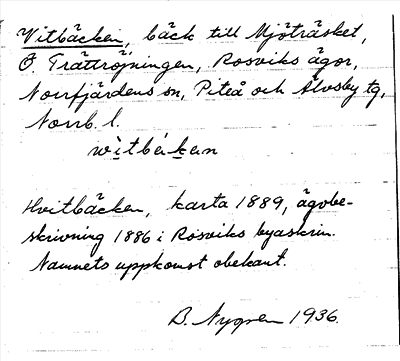 Vitbäcken, bäck till Mjöträsket,
Ö. Trättröjningen, Rosviks ägor,
Norrfjärdens sn, Piteå och Älvsby tg,
Norrb. l.
witbäkan
Hvitbäcken, karta 1889, ägobe-
skrivning 1886 i Rosviks byaskrin.
Namnets uppkomst obekant.
B. Nygren 1936.